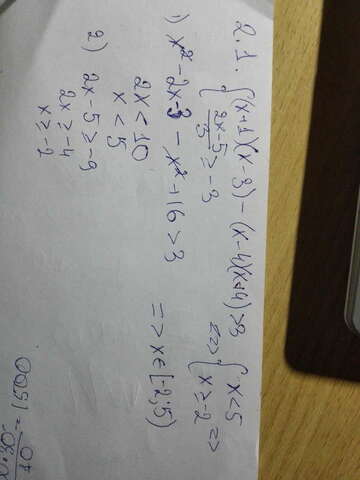 2.1. { (x+1)(x-3) - (x-4)(x+4) > 3
{ 2x-5/3 ≥ -3 <=> { x < 5
{ x ≥ -2 =>
=> x ∈ [-2; 5)
1) x² - 2x - 3 - x² + 16 > 3
2x < 10
x < 5
2) 2x - 5 ≥ -9
2x ≥ -4
x ≥ -2
= 1500